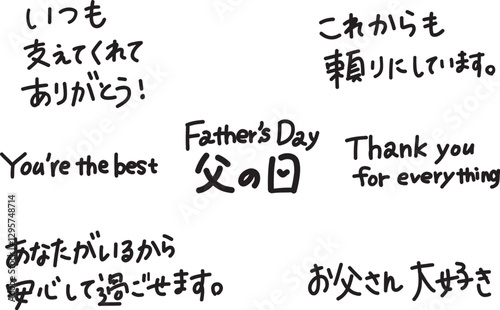 いつも
支えてくれて
ありがとう!
これからも
頼りにしています。
Father's Day
父の日
You're the best
Thank you
for everything
あなたがいるから
安心して過ごせます。
お父さん 大好き
Adobe Stock | #1295748714